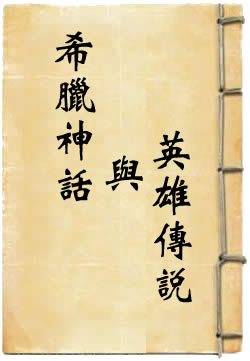 希臘神話
與
英雄傳説